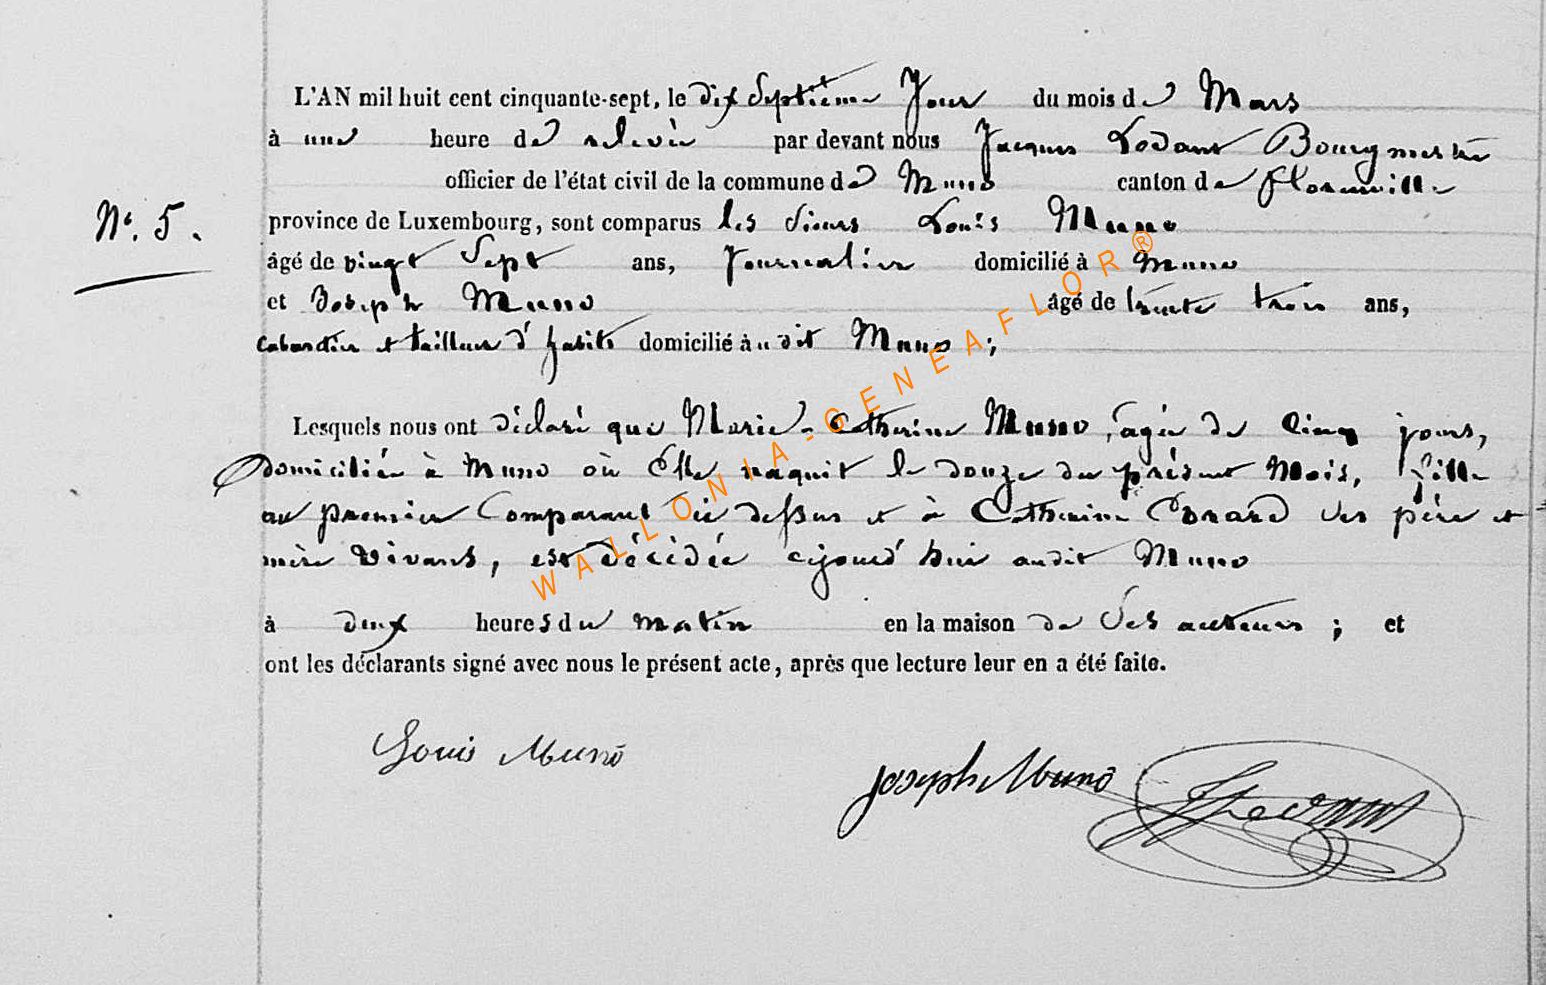 L'AN mil huit cent cinquante-sept, le dix Septième Jour du mois de Mars
à une heure de relevée par devant nous Jacques Bourgmestre
officier de l'état civil de la commune de Muno canton de Florenville
N°. 5.
province de Luxembourg, sont comparus les Sieurs Louis Muno
âgé de vingt Sept ans, Journalier domicilié à Muno
et Joseph Muno âgé de trente trois ans,
Cabaretier et tailleur d'habits domicilié audit Muno ;
Lesquels nous ont déclaré que Marie-Catherine Muno, agée de Cinq jours,
domiciliée à Muno où Elle naquit le douze du présent Mois, fille
au premier Comparant ci dessus et à Catherine Conard Ses père et
mère Vivans, est décédée cejourd'hui audit Muno
à deux heures du matin en la maison de Ses auteurs ; et
ont les déclarants signé avec nous le présent acte, après que lecture leur en a été faite.
Louis Muno
Joseph Muno
WALLONIA-GENEAFLOR®